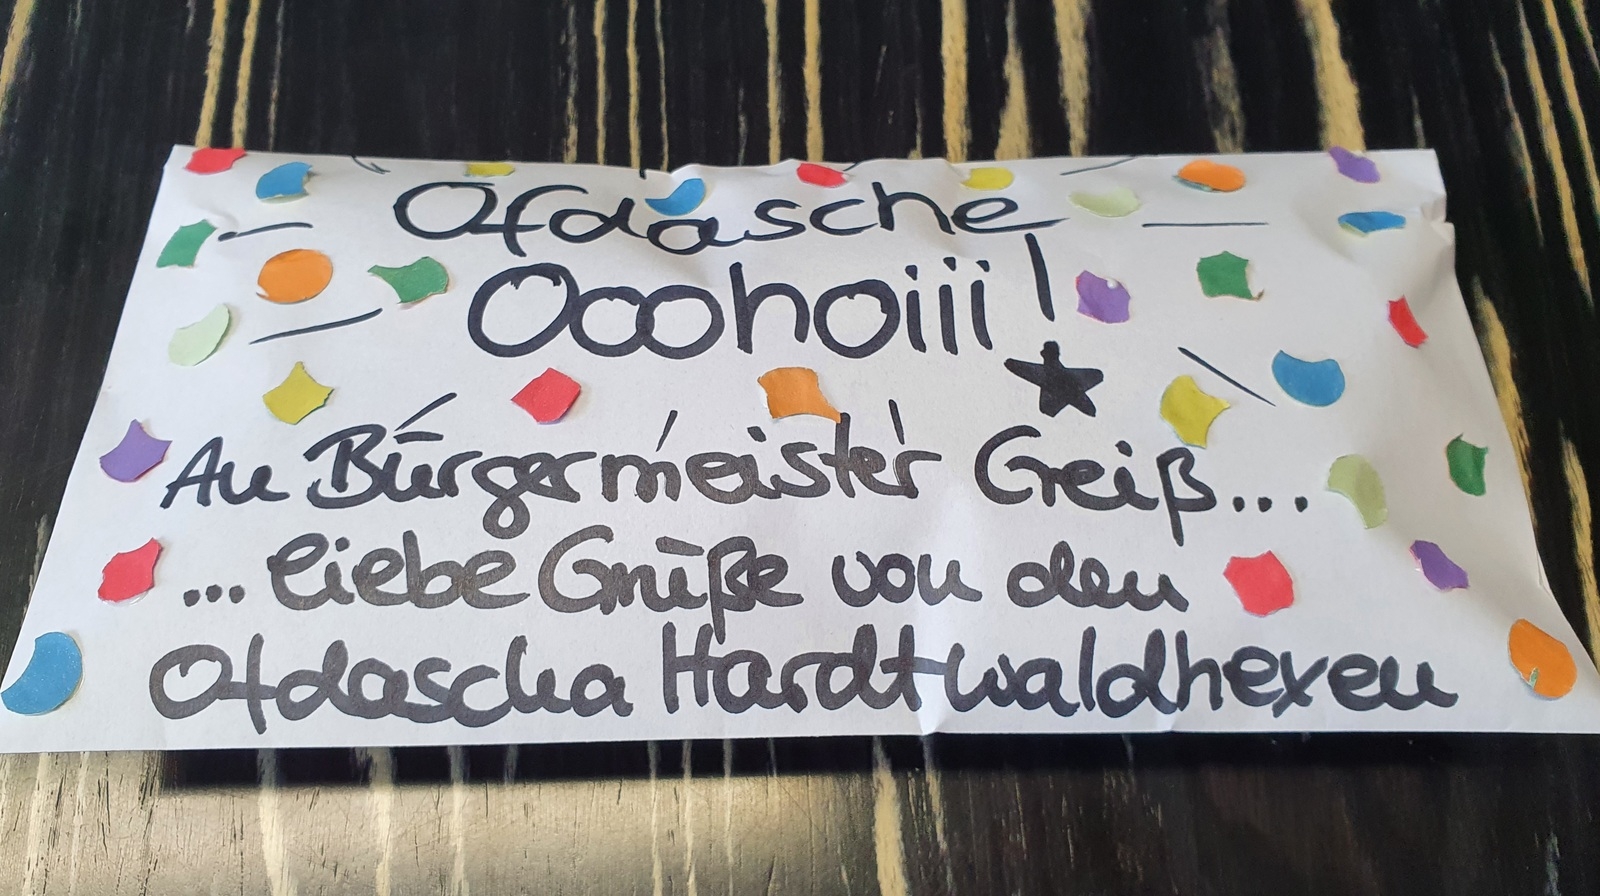 Ofdasche
Ooohoiii!
An Bürgermeister Greiß...
... liebe Grüße von den
Ofdascha Hardtwaldhexen